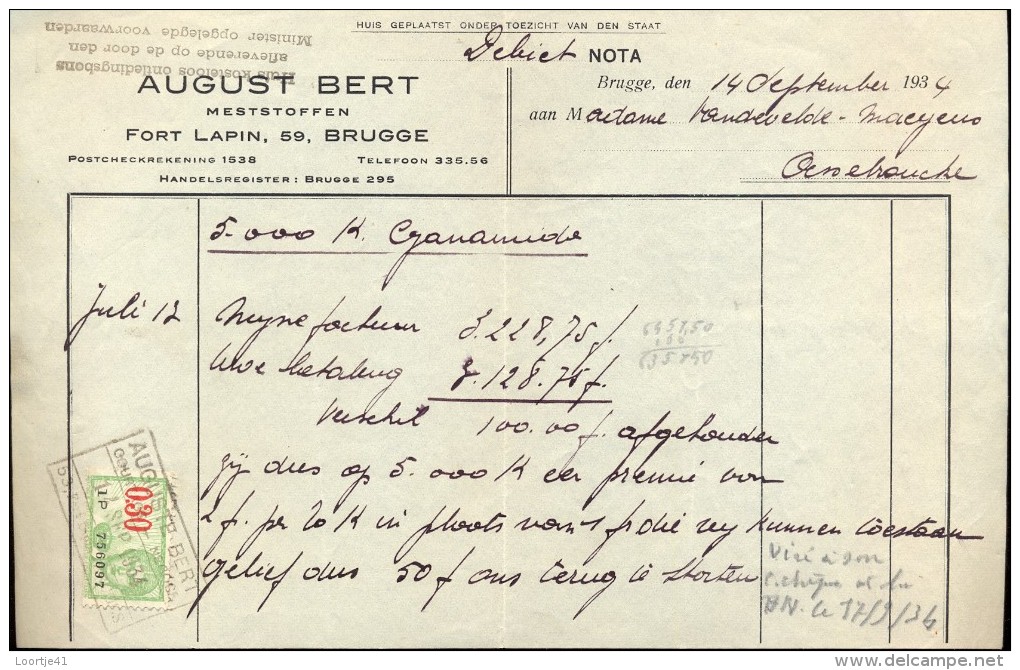 HUIS GEPLAATST ONDER TOEZICHT VAN DEN STAAT
Huis kosteloos ontledingsbons
afleverende op de door den
Minister opgelegde voorwaarden
Debiet NOTA
AUGUST BERT
MESTSTOFFEN
FORT LAPIN, 59, BRUGGE
POSTCHECKREKENING 1538 TELEFOON 335.56
HANDELSREGISTER: BRUGGE 295
Brugge, den 14 September 1934
aan Madame Vandevelde-Maeyens
Assebrouck
5.000 K. Cyanamide
Juli 12 Mijne factuur 3.228,75 f.
Uwe betaling 3.128.75 f.
Verschil 100.00 f. afgehouden
zij dus op 5.000 K een premie van
2 f. per 20 K in plaats van 1 f die wij kunnen toestaan
gelief dus 50 f ons terug te storten
Viré à son
BN. le 17/9/34
AUGUST BERT
0.30
1P
756097
Loortje41
www.delcampe.net